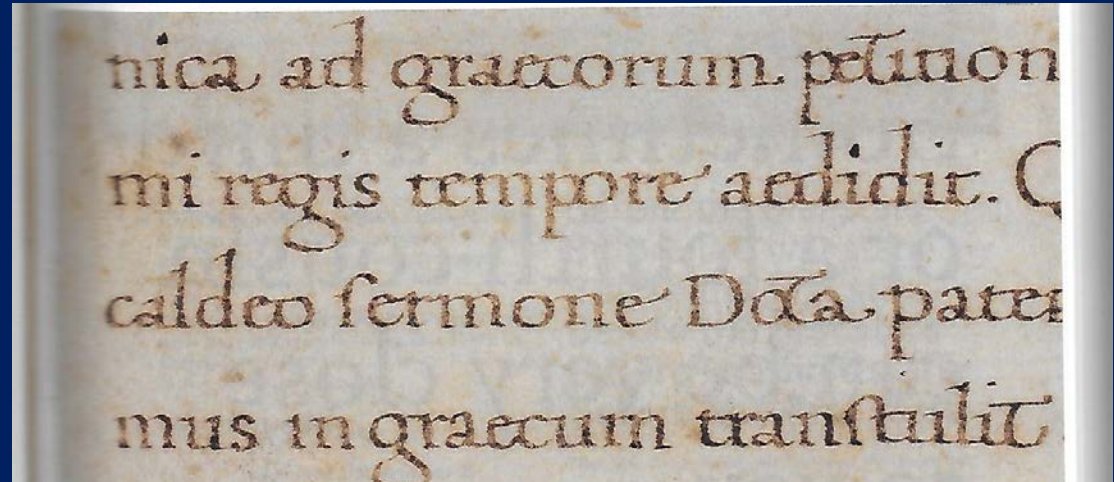 nica ad graecorum petition
mi regis tempore aedidit. Q
caldeo ſermone Docta pate
mus in graecum tranſtulit